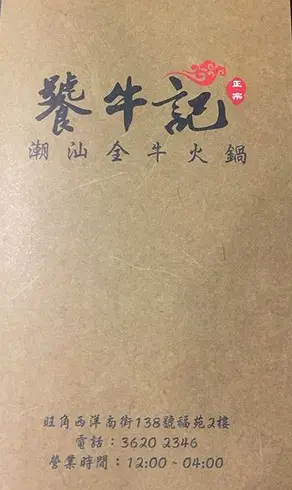 饕牛記
正宗
潮汕全牛火鍋
旺角西洋南街138號福苑2樓
電話：3620 2346
營業時間：12:00 - 04:00